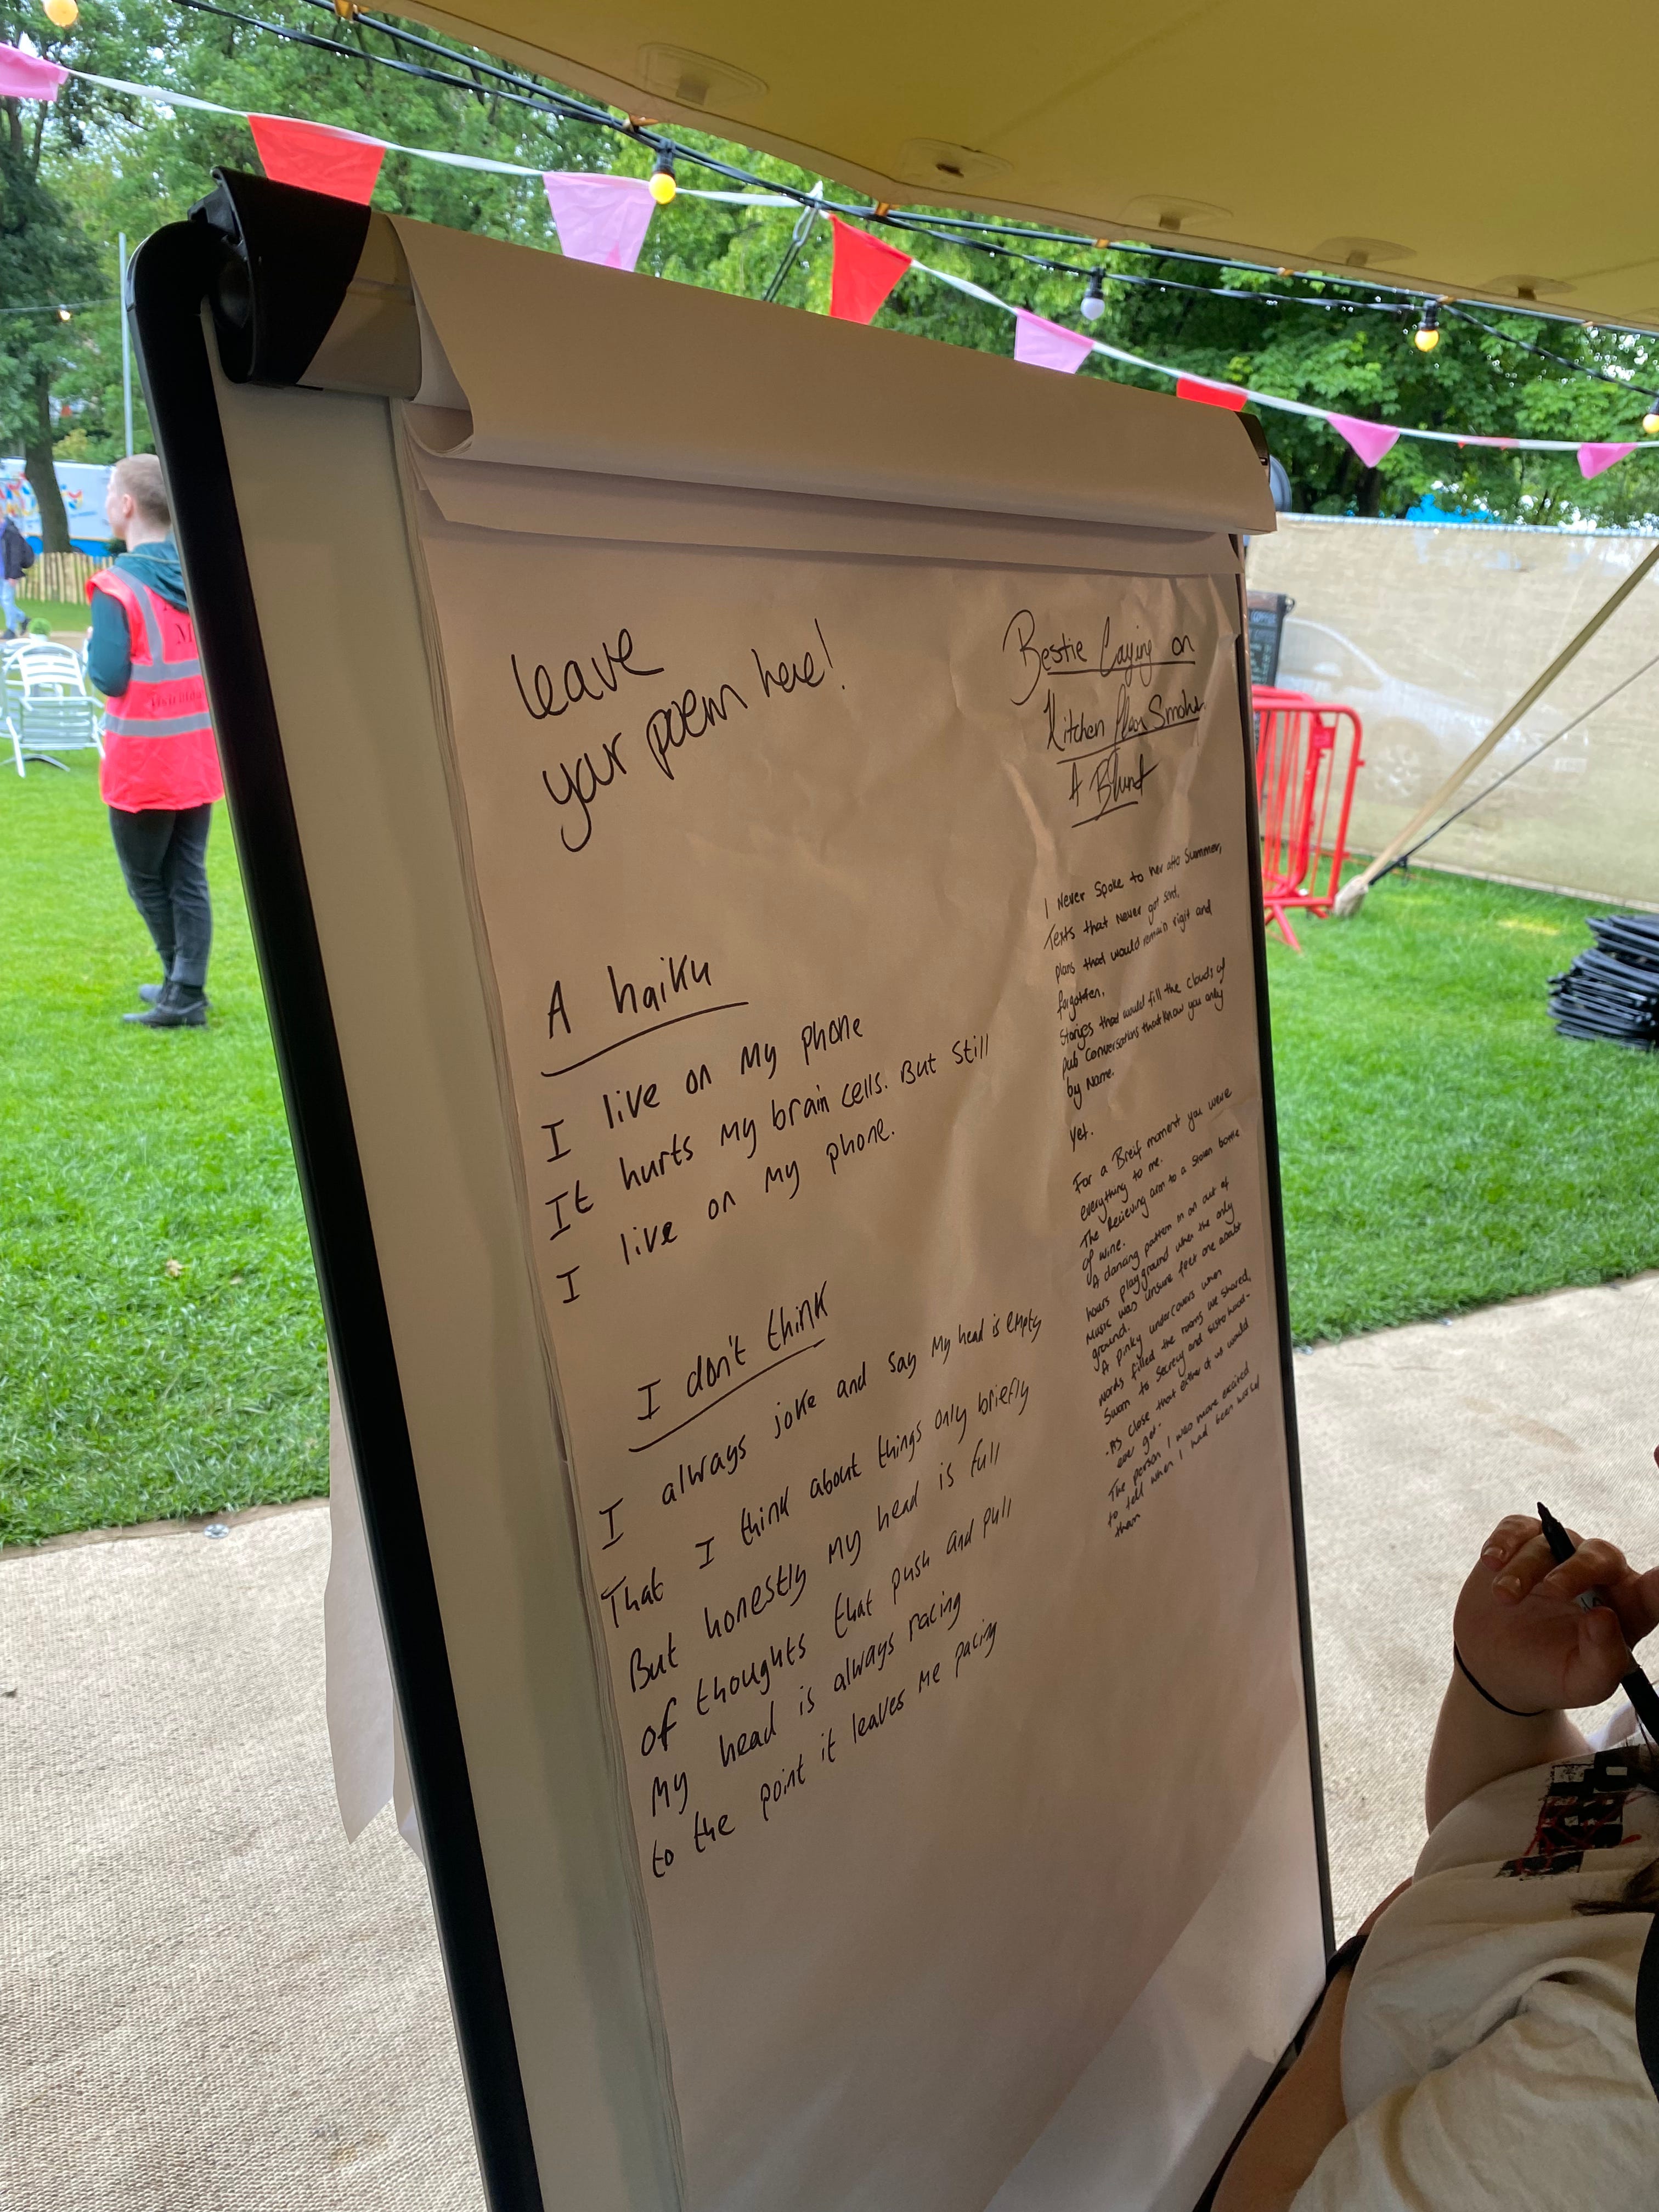 leave
your poem here!
A haiku
I live on my phone
It hurts my brain cells. But still
I live on my phone.
I don't think
I always joke and say my head is empty
That I think about things only briefly
But honestly my head is full
of thoughts that push and pull
My head is always racing
to the point it leaves me pacing
Bestie Laying on
Kitchen floor Smoke
A Blunt
I Never Spoke to her after Summer,
Texts that Never got sent,
plans that would remain rigit and
forgotten.
Stories that would fill the clouds of
pub Conversations that know you only
by Name.
Yet.
For a Breif moment you were
everything to me.
The Recieving arm to a Stolen bottle
of wine.
A dancing pattern in an out of
hours playground when the only
Music was unsure feet one
ground.
A pinky undercovers when
words filled the rooms we shared,
Sworn to Secrecy and sisterhood-
-As Close that either of us would
ever get-
The person I was more excited
to tell when I had been
them